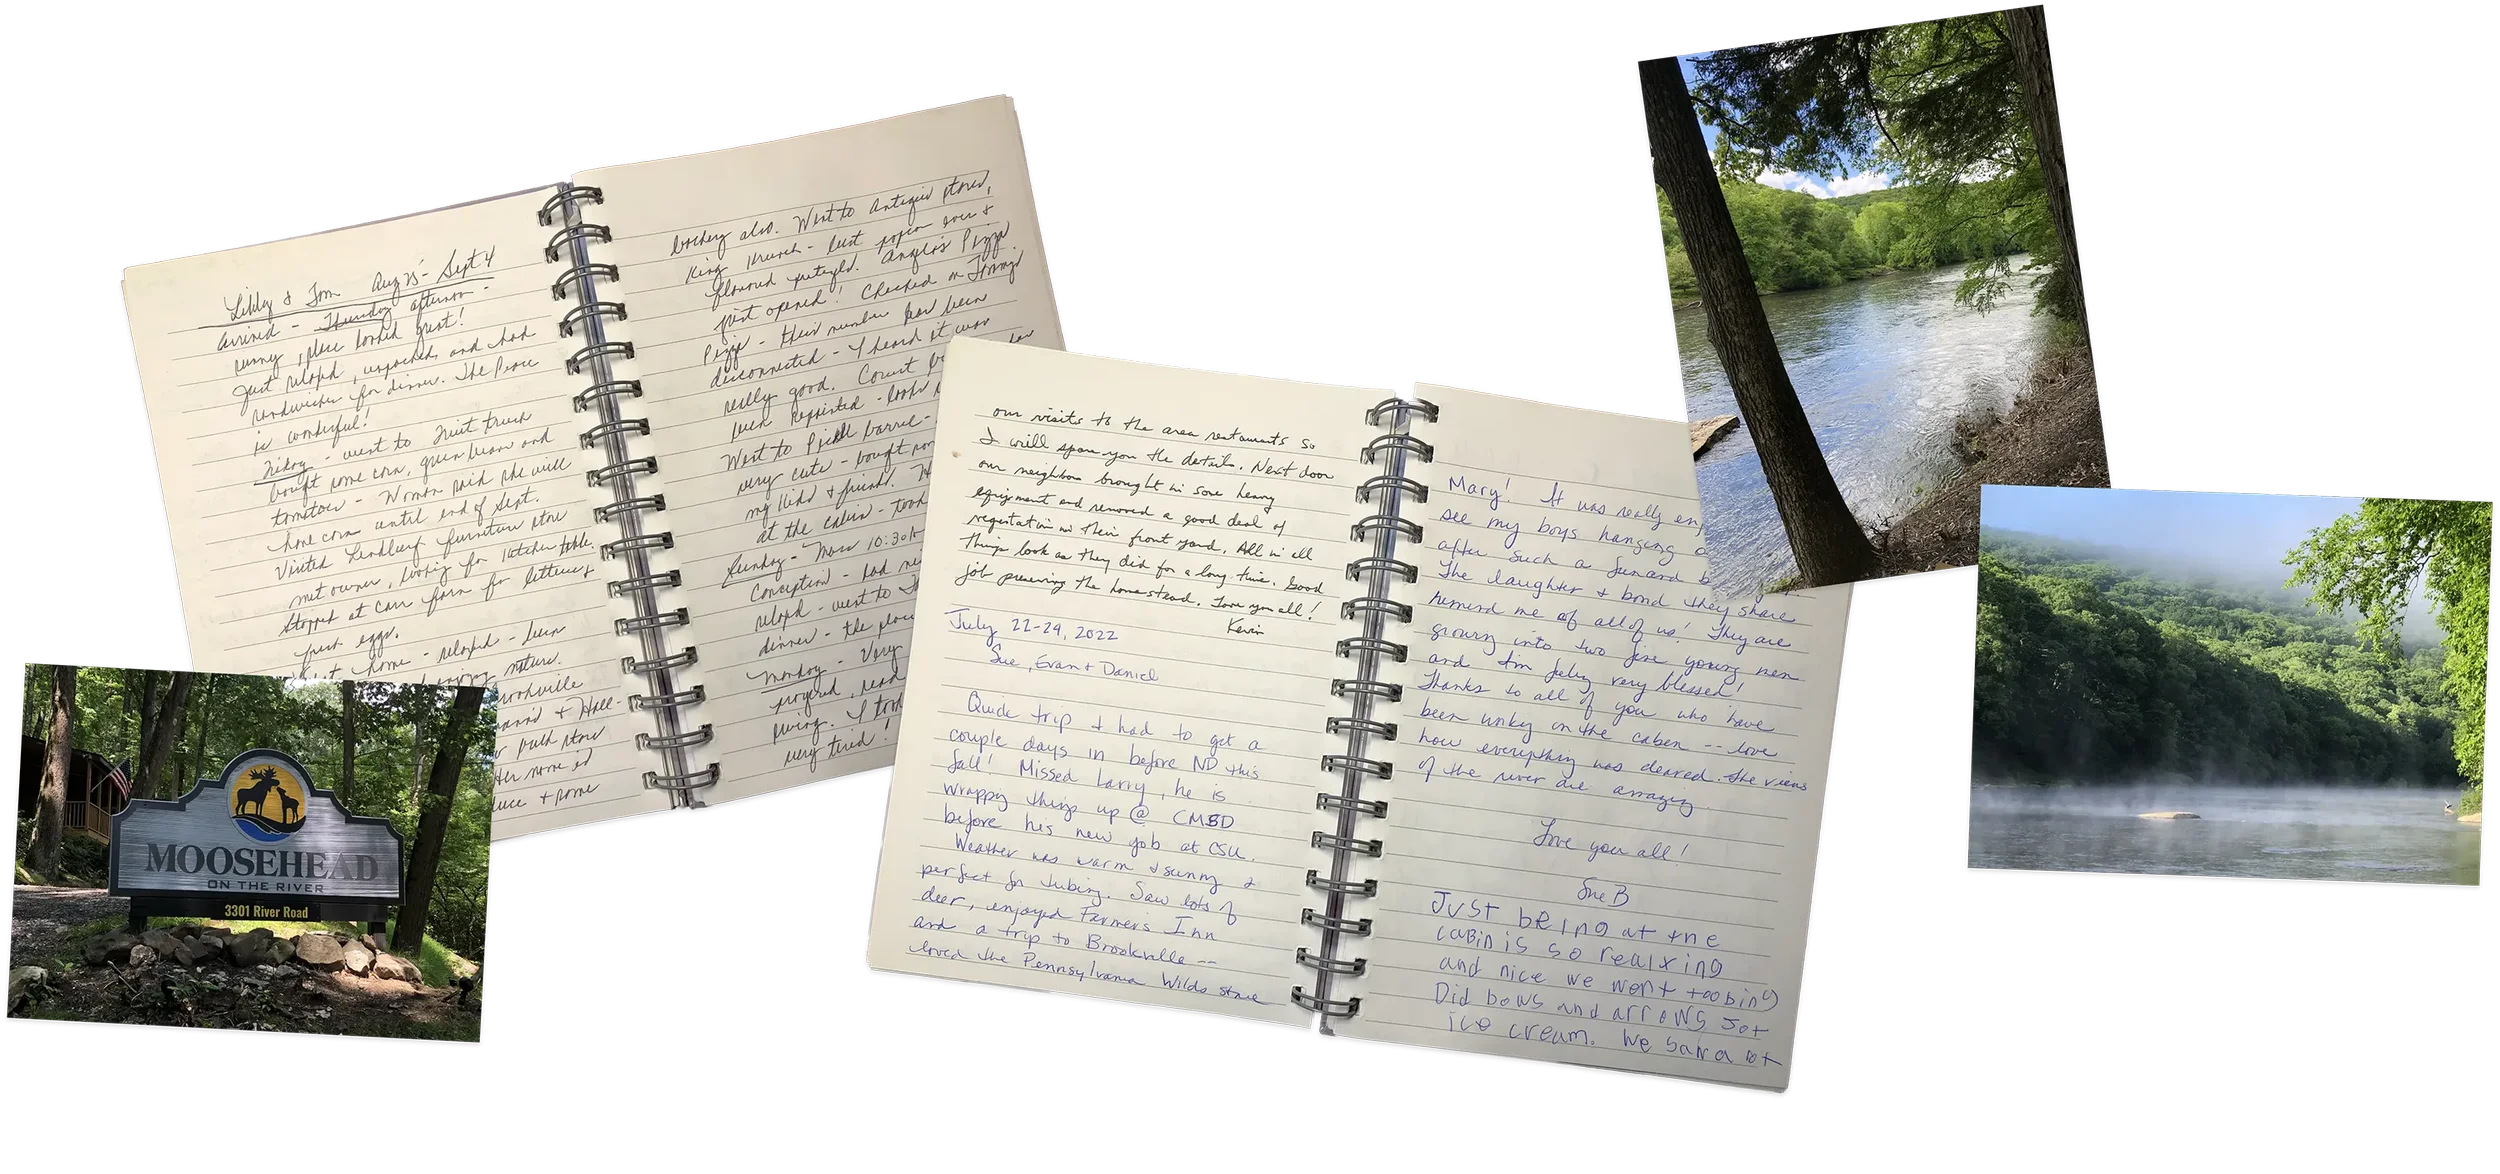 Libby & Tom Aug 25 - Sept 4
Arrived - Thursday afternoon -
sunny, place looked great!
Just relaxed, unpacked and had
sandwiches for dinner. The Place
is wonderful!
Friday - went to Fruit truck
bought some corn, green beans and
tomatoes - Woman said she will
have corn until end of Sept.
Visited furniture store
met owner, looking for kitchen table.
Stopped at Carr farm for lettuce &
fresh eggs.
home - relaxed - been
nature.
Brookville
& Hall-
store
Her name is
& some
also. Went to Antique store,
King Krunch - best popcorn ever &
flavored pretzels. Angelo's Pizza
just opened! Checked on
Pizza - their number has been
disconnected - I heard it was
really good. Court
been repainted - looks
Went to Pickle barrel -
very cute - bought
my kids & friends.
at the cabin - took
Sunday - Mass 10:30
Conception - had
relaxed - went to
dinner - the place
Monday - Very
read
swing. I took
very tired!
our visits to the area restaurants so
I will spare you the details. Next door
our neighbors brought in some heavy
equipment and removed a good deal of
vegetation in their front yard. All in all
things look as they did for a long time. Good
job preserving the homestead. Love you all!
Kevin
July 22-24, 2022
Sue, Evan + Daniel
Quick trip + had to get a
couple days in before ND this
fall! Missed Larry, he is
wrapping things up @ CMSD
before his new job at CSU.
Weather was warm & sunny &
perfect for tubing. Saw lots of
deer, enjoyed Farmer's Inn
and a trip to Brookville --
loved the Pennsylvania Wilds store
Mary! It was really
see my boys hanging
after such a fun and
The laughter & bond they share
remind me of all of us! They are
growing into two fine young men
and I'm feeling very blessed!
Thanks to all of you who have
been working on the cabin -- love
how everything was cleared. The views
of the river are amazing.
Love you all!
Sue B
JUST being at the
cabin is so realxing
and nice we went toobing
Did bows and arrows Jot
ice cream. We saw a lot
MOOSEHEAD
ON THE RIVER
3301 River Road